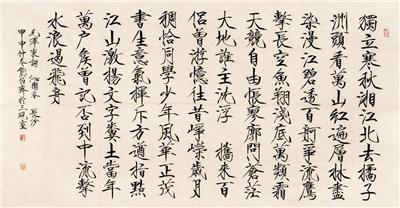 獨立寒秋湘江北去橘子
洲頭看萬山紅遍層林盡
染漫江碧透百舸爭流鷹
擊長空魚翔淺底萬類霜
天競自由悵寥廓問蒼茫
大地誰主沉浮 攜來百
侶曾游憶往昔崢嶸歲月
稠恰同學少年風華正茂
書生意氣揮斥方遒指點
江山激揚文字糞土當年
萬户侯曾記否到中流擊
水浪遏飛舟
毛澤東詞 沁園春 長沙
甲申仲冬於三研室